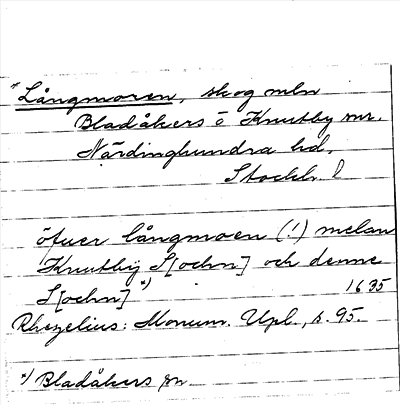 *Långmoren, skog mln
Bladåkers o Knutby snr.
Närdinghundra hd.
Stockh. l
öfuer långmoen (!) melan
Knutby S[ochn] och denne
S[ochn] *) 1635
Rhezelius: Monum. Upl., s. 95.
*) Bladåkers sn